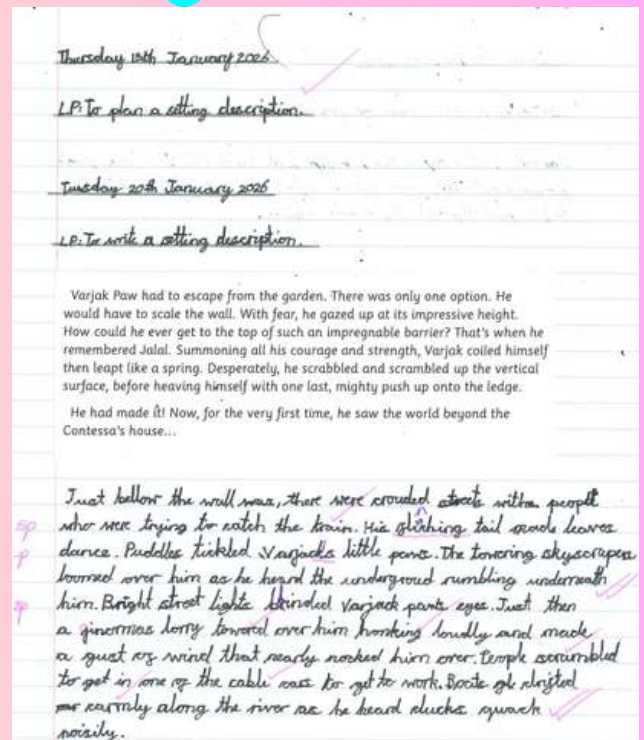 Thursday 15th January 2026
LP: To plan a setting description.
Tuesday 20th January 2026
LP: To write a setting description.
Varjak Paw had to escape from the garden. There was only one option. He
would have to scale the wall. With fear, he gazed up at its impressive height.
How could he ever get to the top of such an impregnable barrier? That's when he
remembered Jalal. Summoning all his courage and strength, Varjak coiled himself
then leapt like a spring. Desperately, he scrabbled and scrambled up the vertical
surface, before heaving himself with one last, mighty push up onto the ledge.
He had made it! Now, for the very first time, he saw the world beyond the
Contessa's house...
Just bellow the wall was, there were crouded streets with people
sp who were trying to catch the train. His tail made leaves
p dance. Puddles tickled Varjacks little paws. The towering skyscrapers
loomed over him as he heard the undergroud rumbling underneath
sp him. Bright street lights blinded Varjack paws eyes. Just then
a ginormas lorry towered over him honking loudly and made
a gust of wind that nearly nocked him over. People scrambled
to get in one of the cable cars to get to work. Boats drifted
carmly along the river as he heard ducks qwack
noisily.